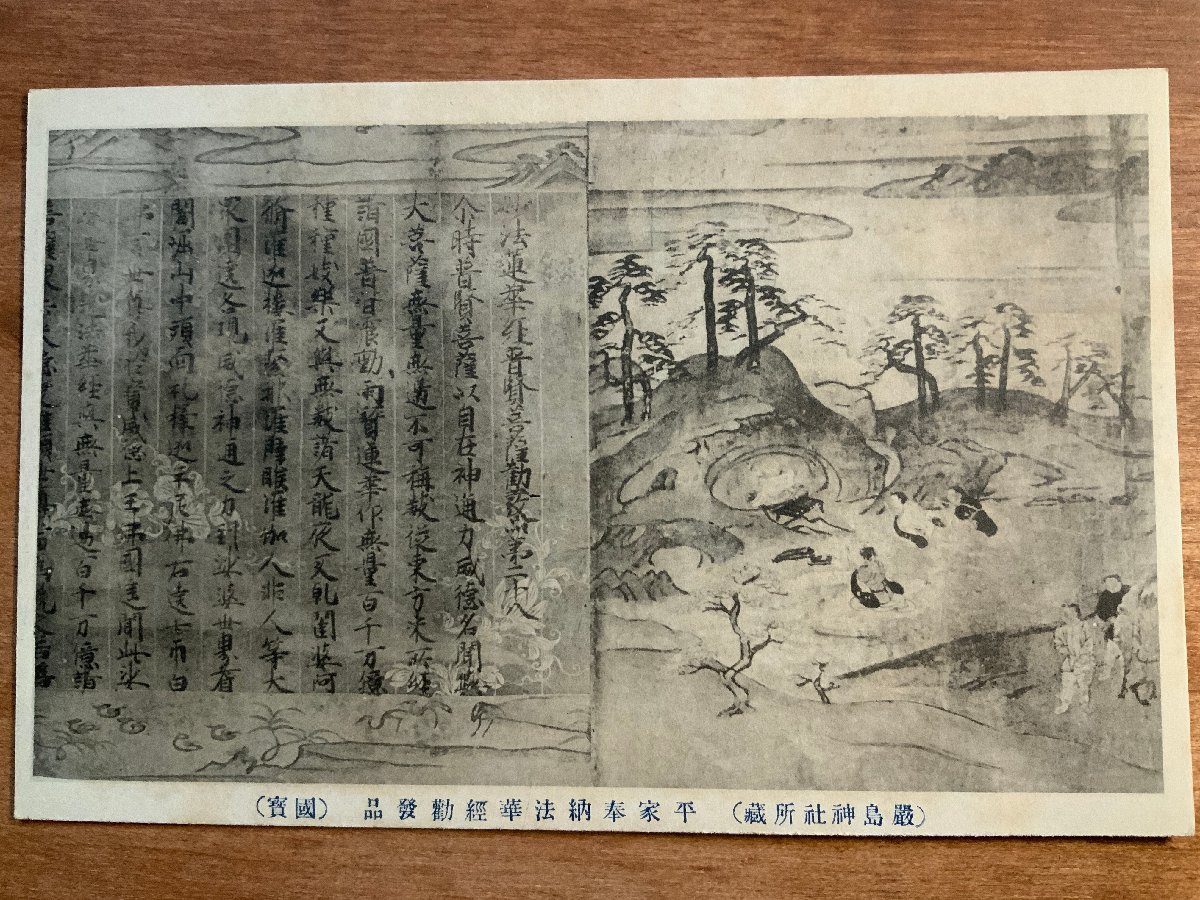 妙法蓮華經普賢菩薩勸發品第二十八
尒時普賢菩薩以自在神通力威德名聞與
大菩薩無量無邊不可稱數從東方來所經
諸國普皆震動雨寶蓮華作無量百千万億
種種伎樂又與無數諸天龍夜叉乹闥婆阿
脩羅迦樓羅緊那羅摩睺羅伽人非人等大
衆圍遶各現威德神通之力到娑婆世界耆
闍崛山中頭面礼釋迦牟尼佛右遶七帀白
佛言世尊我於寶威德上王佛國遥聞此娑
婆世界說法華經與無量無邊百千万億諸
（嚴島神社所藏） 平家奉納法華經勸發品 （國寶）